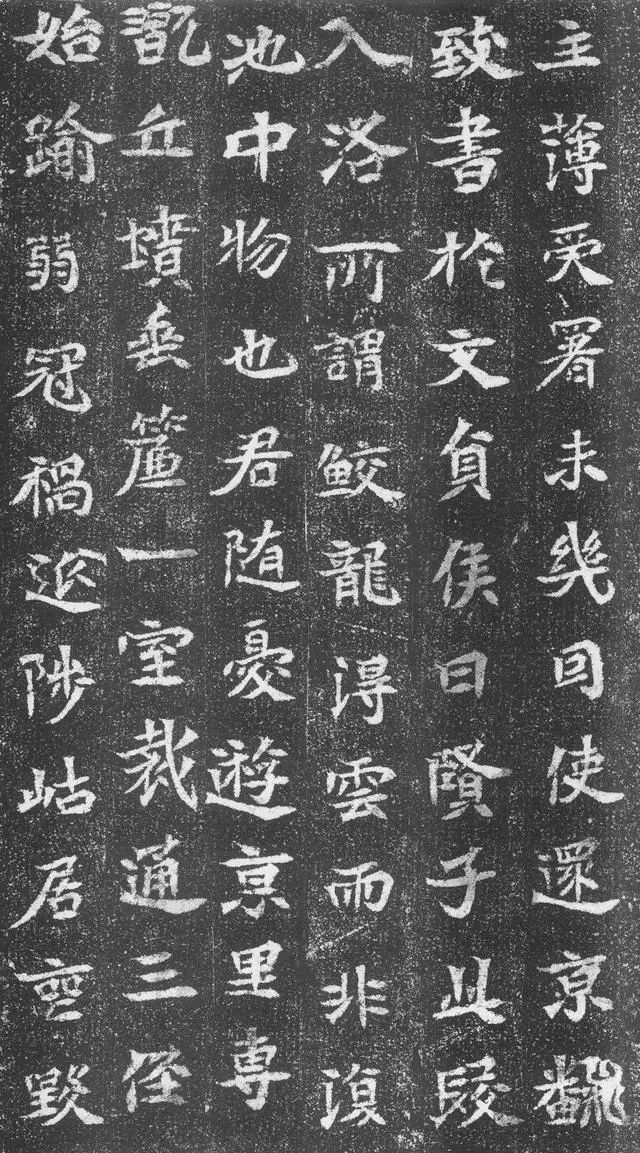 主薄受署未幾回使還京飜
致書於文貞侯曰賢子此段
入洛所謂鮫龍得雲而非復
池中物也君随憂遊京里専
翫丘墳垂簾一室裁通三徑
始踰弱冠禍陟岵居喪毀